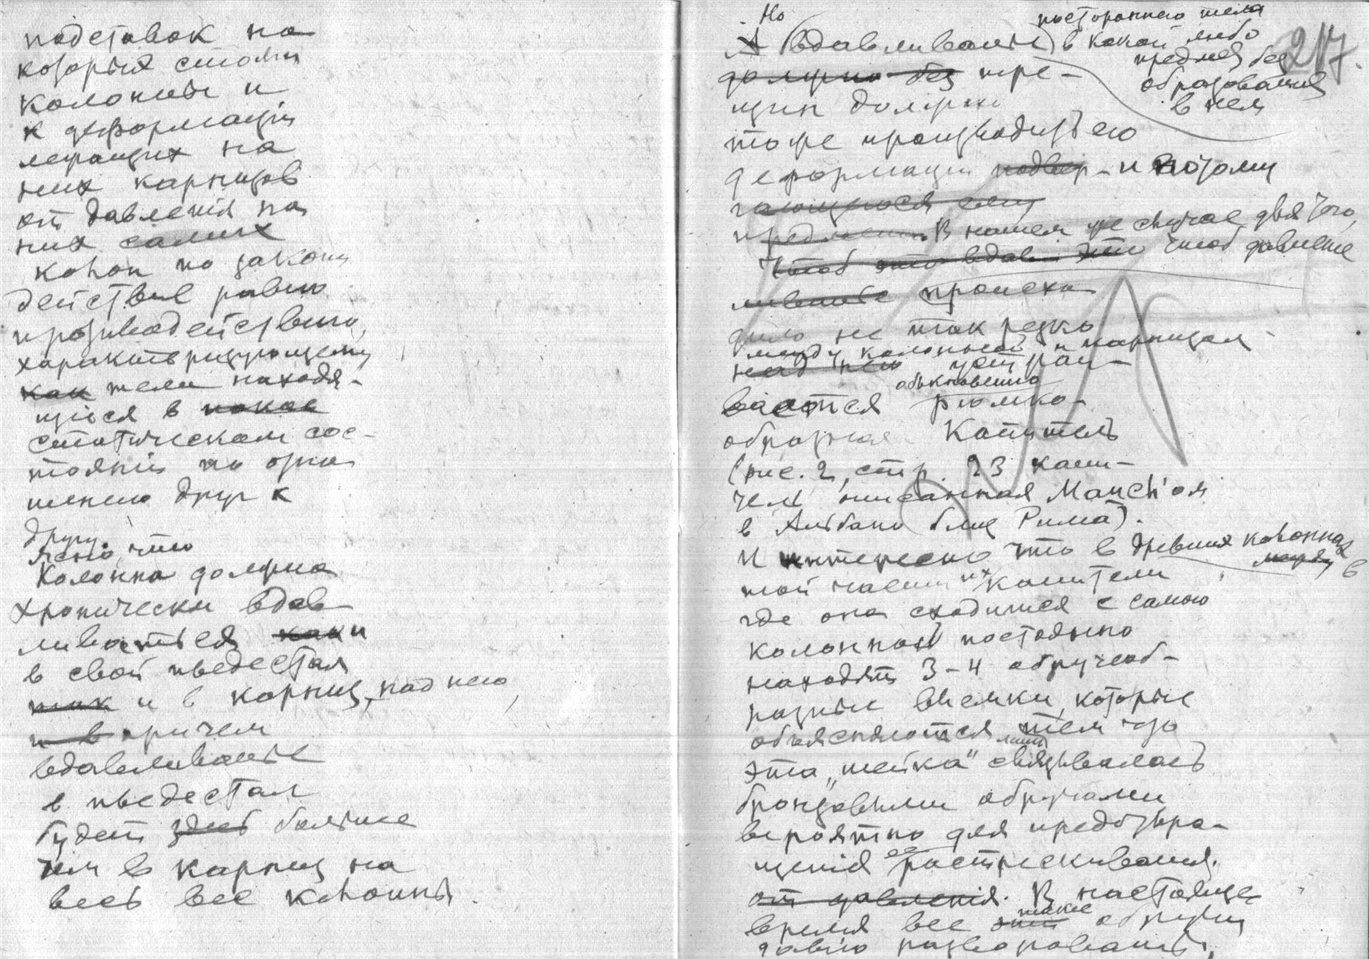 подставок на
которыя стоятъ
колонны и
к деформации
лежащих на
них карнизов
от давления на
них самих
колон по закону
действие равно
противодействию,
характеризующему
как тела находя-
щиеся в покое
статическом сос-
тоянии по отно
шению друг к
другу.
Ясно, что
Колонна должна
хронически вдав
ливаться как и
в свой пьедестал
так и в карниз над нею,
и в причем
вдавливанье
в пьедестал
будет здесь больше
чем в карниз на
весь вес колонны
217.
Но постороннего тела
А (вдавливанье) в какой либо
предмет без
должно без тре-
образования
щин должно
в нем
тоже производить его
деформации подвер- и потому
гающуюся ему
предмету. В нашем же случае для того,
чтоб это вдав это чтоб давление
ливанье происхо-
дило не так резко
между колонной и карнизом
над нею устраи-
обыкновенно
вается рюмко-
образная Капитель
(рис. 2, стр. 23 капи-
тель описанная Mauch'ом
в Альбано близ Рима).
И интересно что в древних колоннах
между в
той части их капители
где она сходится с самою
колонной постоянно
находят 3-4 обручеоб-
разные выемки, которые
объясняются тем что
эта „шейка" связывалась
бронзовыми обручами
вероятно для предотвра-
щения ее растрескивания.
от давления. В настоящее
время все эти такие обручи
давно разворованы,